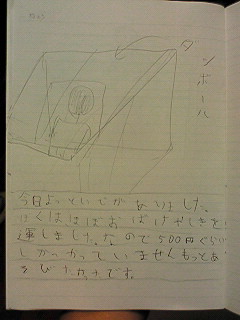 ダンボール
今日よっといでがありました。
ぼくはははおばけやしきを
運しました。なので500円ぐらい
しかつかっていませんもっとあ
そびたかったです。